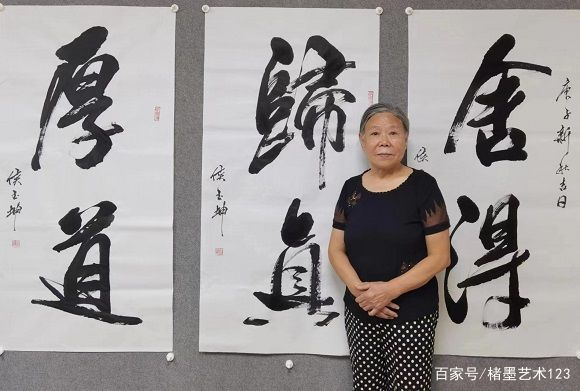 厚道
侯玉坤
歸真
侯玉坤
舍得
庚子新秋吉日
侯
百家号/楮墨艺术123